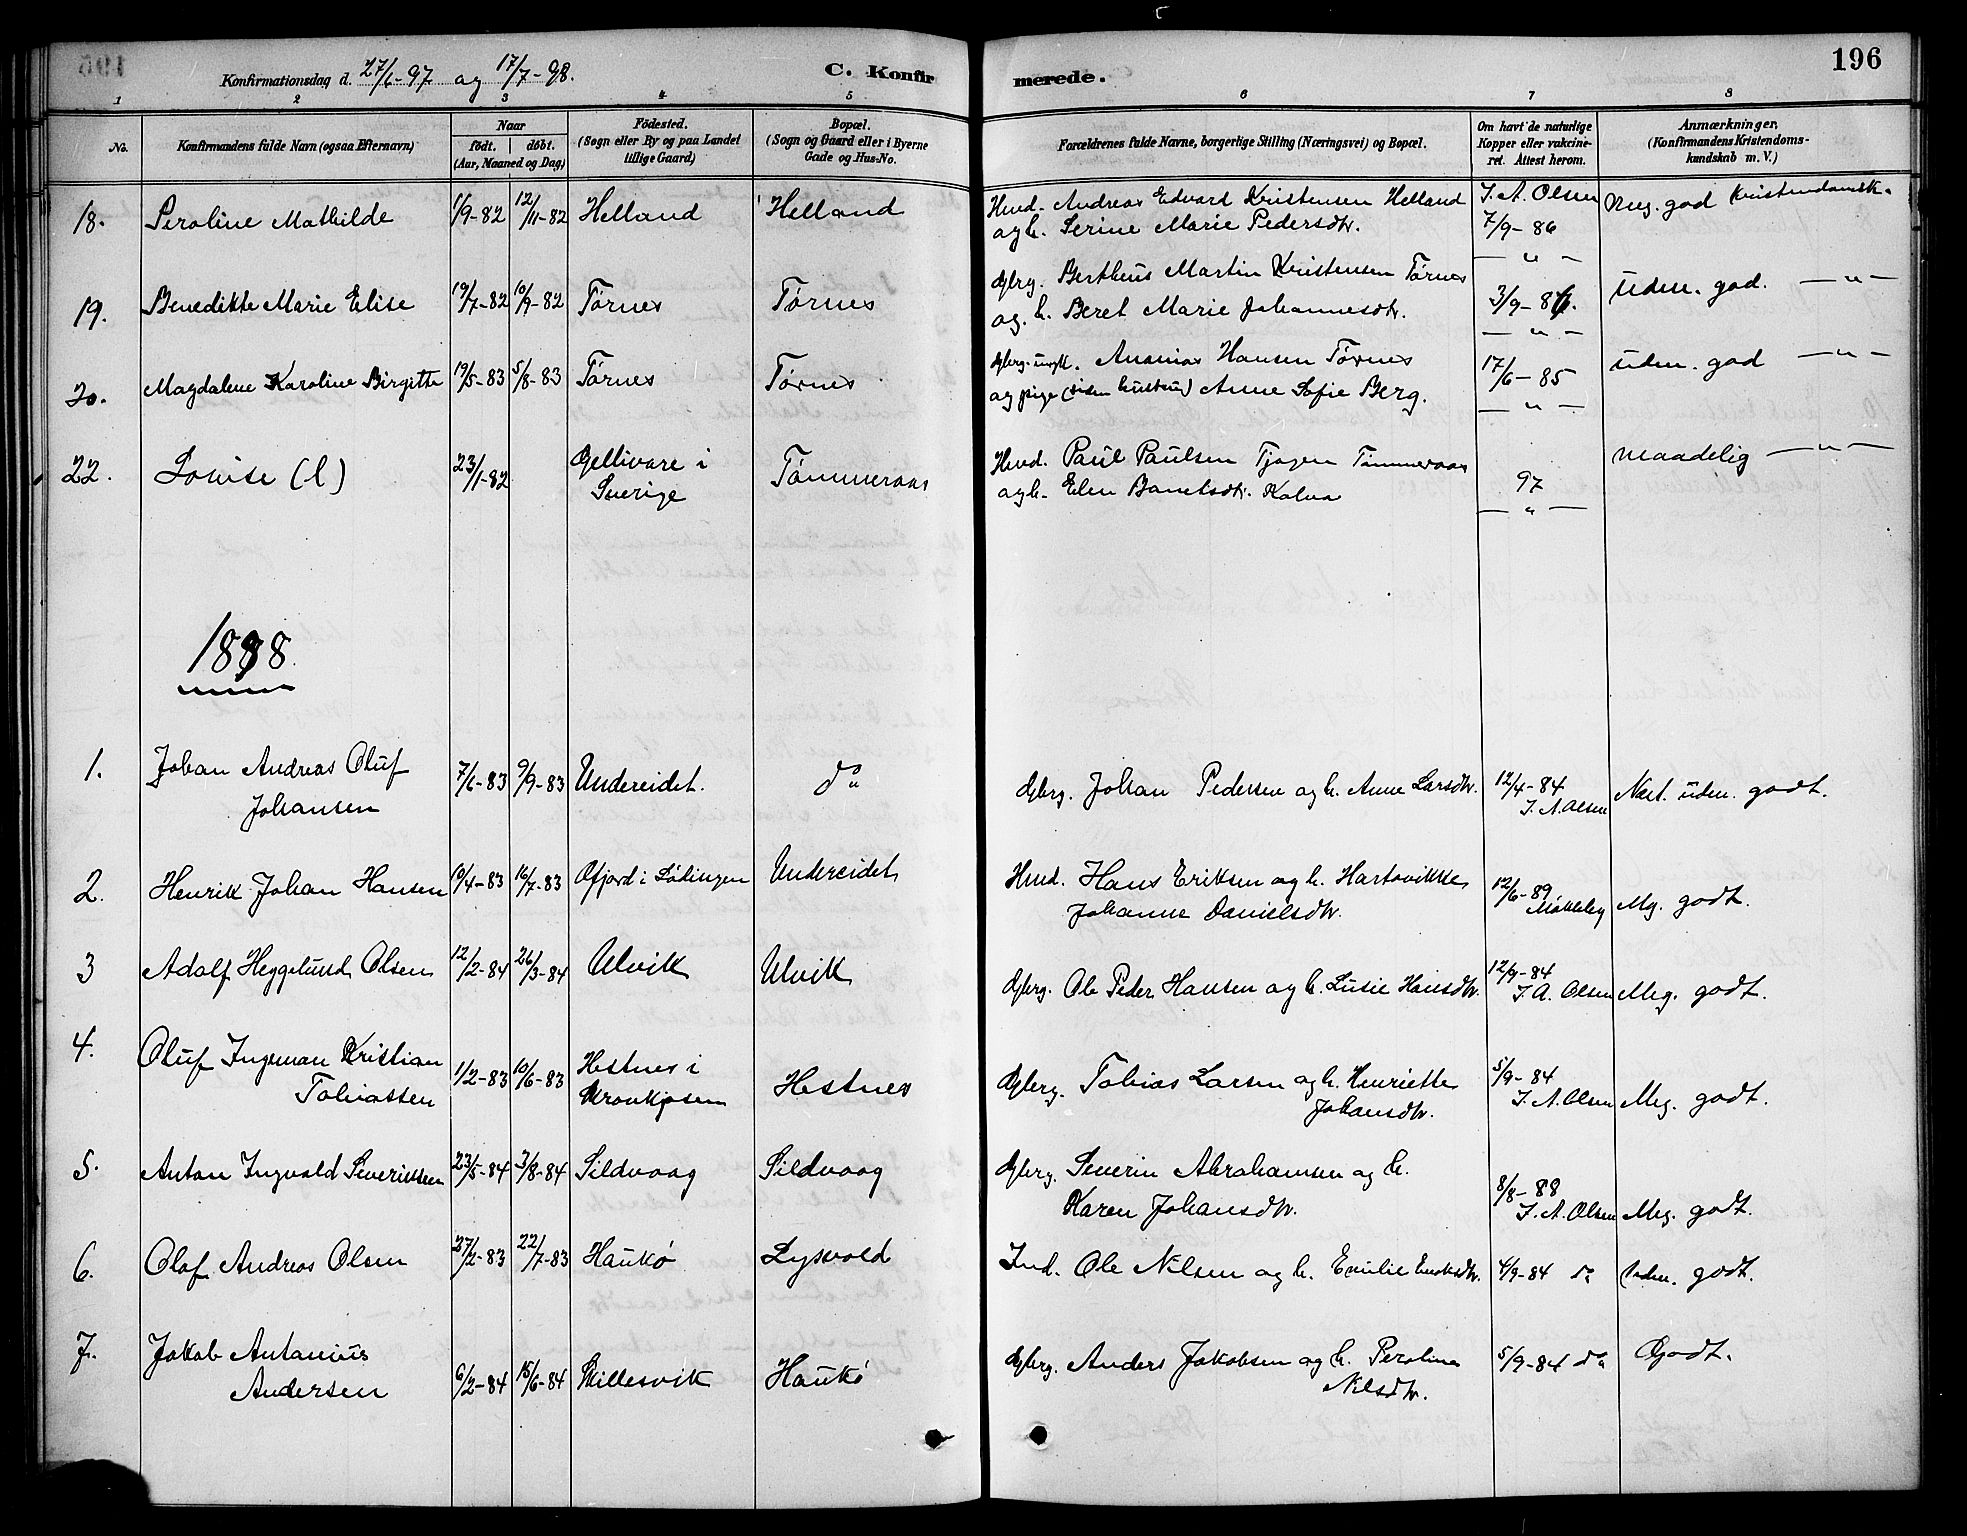 196
Konfirmationsdag d. 27/6-97 og 17/7-98.
C. Konfirmerede.
1 2 3 4 5 6 7 8
No.
Konfirmandens fulde Navn (ogsaa Efternavn)
Naar
født. døbt.
(Aar, Maaned og Dag)
Fødested.
(Sogn eller By og paa Landet
tillige Gaard)
Bopæl.
(Sogn og Gaard eller i Byerne
Gade og Hus-No.
Forældrenes fulde Navne, borgerlige Stilling (Næringsvei) og Bopæl.
Om havt de naturlige
Kopper eller vakcine-
ret. Attest herom.
Anmærkninger.
(Konfirmandens Kristendoms-
kundskab m. V.)
18. Peroline Mathilde 1/9-82 12/11-82 Helland Helland Hmd. Andreas Edvard Kristensen Helland J. A. Olsen Meg. god Kristendomsk.
og h. Serine Marie Pedersdtr. 7/9-86
— " —
19. Benedikte Marie Elise 19/7-82 10/9-82 Tørnes Tørnes gbrg. Bertheus Martin Kristensen Tørnes 3/9-86. uden. god. — " —
og. h. Beret Marie Johannesdtr.
— " —
20. Magdalene Karoline Birgitte 19/5-83 5/8-83 Tørnes Tørnes gbrg. ungk. Ananias Hansen Tørnes 17/6-85 uden. god — " —
og pige (siden hustru) Anne Sofie Berg.
— " —
22. Lovise (l) 23/1-82 Gellivare i Tømmeraas Hmd. Paul Paulsen Tømmeraas 97 maadelig — " —
Sverige og h. Elen
— " —
1898.
1. Johan Andreas Oluf 7/6-83 9/9-83 Undereidet. do gbrg. Johan Pedersen og h. Anne Larsdtr. 12/4-84 Næst. uden. godt.
Johansen J. A. Olsen
2. Henrik Johan Hansen 10/4-83 16/7-83 Ofjord i Lødingen Undereidet Hmd. Hans Eriksen og h. Hartvikke 12/6-89 Mg. godt.
Johanne Danielsdtr. Møkleby
3 Adolf Heggelund Olsen 12/2-84 26/3-84 Ulvik Ulvik gbrg. Ole Peder Hansen og h. Lusie Hansdtr. 12/9-84 Meg. godt.
J. A. Olsen
4. Oluf Ingeman Kristian 1/2-83 10/6-83 Hestnes i Hestnes gbrg. Tobias Larsen og h. Henriette 5/9-84 Meg. godt.
Tobiassen Johansdtr. J. A. Olsen
5. Anton Ingvald Severinsen 23/5-84 3/8-84 Sildvaag Sildvaag gbrg. Severin Abrahamsen og h. 8/8-88 Meg. godt.
Karen Johansdtr. J. A. Olsen
6. Olaf Andreas Olsen 27/2-83 22/7-83 Haukø Lysvold Ind. Ole Nilsen og h. Emilie 4/9-84 do Uden. godt.
7. Jakob Antonius 6/2-84 15/6-84 Skillesvik Haukø gbrg. Anders Jakobsen og h. Peroline 5/9-84 do Godt.
Andersen Nilsdtr.